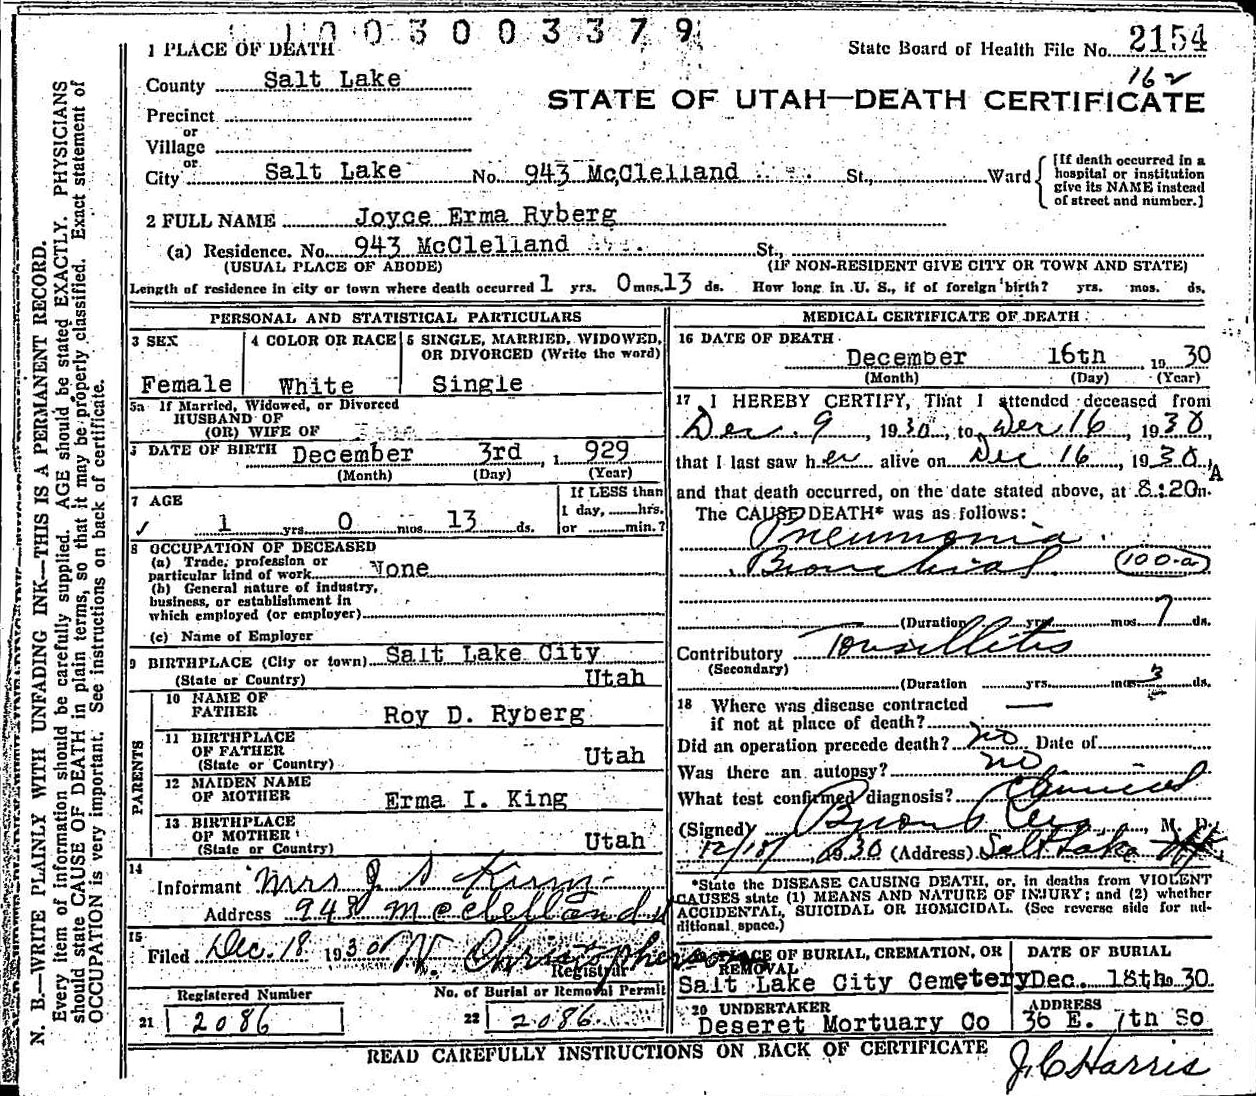 1003003379
1 PLACE OF DEATH
State Board of Health File No. 2154
162
County Salt Lake
STATE OF UTAH—DEATH CERTIFICATE
Precinct
or
Village
or
City Salt Lake No. 943 McClelland St., Ward [If death occurred in a hospital or institution give its NAME instead of street and number.]
2 FULL NAME Joyce Erma Ryberg
(a) Residence. No. 943 McClelland St.,
(USUAL PLACE OF ABODE) (IF NON-RESIDENT GIVE CITY OR TOWN AND STATE)
Length of residence in city or town where death occurred 1 yrs. 0 mos. 13 ds. How long in U. S., if of foreign birth? yrs. mos. ds.
PERSONAL AND STATISTICAL PARTICULARS
3 SEX
Female
4 COLOR OR RACE
White
5 SINGLE, MARRIED, WIDOWED,
OR DIVORCED (Write the word)
Single
5a If Married, Widowed, or Divorced
HUSBAND OF
(OR) WIFE OF
DATE OF BIRTH December 3rd, 1 929
(Month) (Day) (Year)
7 AGE
1 yrs. 0 mos. 13 ds.
If LESS than
1 day, hrs.
or min.?
8 OCCUPATION OF DECEASED
(a) Trade, profession or
particular kind of work None
(b) General nature of industry,
business, or establishment in
which employed (or employer)
(c) Name of Employer
9 BIRTHPLACE (City or town) Salt Lake City
(State or Country) Utah
PARENTS
10 NAME OF
FATHER Roy D. Ryberg
11 BIRTHPLACE
OF FATHER Utah
(State or Country)
12 MAIDEN NAME
OF MOTHER Erma I. King
13 BIRTHPLACE
OF MOTHER
(State or Country) Utah
14
Informant Mrs J. S King
Address 943 McClelland
15
Filed Dec. 18 1930 W. Christopherson
Registrar
Registered Number
21 2086
No. of Burial or Removal Permit
22 2086
MEDICAL CERTIFICATE OF DEATH
16 DATE OF DEATH
December 16th 19 30
(Month) (Day) (Year)
17 I HEREBY CERTIFY, That I attended deceased from
Dec. 9, 1930, to Dec 16, 1930,
that I last saw her alive on Dec 16, 1930,
and that death occurred, on the date stated above, at 8:20 A m.
The CAUSE DEATH* was as follows:
Pneumonia
Bronchial 100-a
(Duration yrs. mos. 7 ds.
Contributory Tonsillitis
(Secondary)
(Duration yrs. mos. 3 ds.
18 Where was disease contracted
if not at place of death? —
Did an operation precede death? no Date of
Was there an autopsy? no
What test confirmed diagnosis? Clinical
(Signed) Byron Rees, M. D.
12/18, 1930 (Address) Salt Lake
*State the DISEASE CAUSING DEATH, or, in deaths from VIOLENT
CAUSES state (1) MEANS AND NATURE OF INJURY; and (2) whether
ACCIDENTAL, SUICIDAL OR HOMICIDAL. (See reverse side for additional space.)
PLACE OF BURIAL, CREMATION, OR
REMOVAL
Salt Lake City Cemetery
DATE OF BURIAL
Dec. 18th 30
20 UNDERTAKER
Deseret Mortuary Co
ADDRESS
36 E. 7th So
READ CAREFULLY INSTRUCTIONS ON BACK OF CERTIFICATE
J C Harris
N. B.—WRITE PLAINLY WITH UNFADING INK—THIS IS A PERMANENT RECORD.
Every item of information should be carefully supplied. AGE should be stated EXACTLY. PHYSICIANS
should state CAUSE OF DEATH in plain terms, so that it may be properly classified. Exact statement of
OCCUPATION is very important. See instructions on back of certificate.